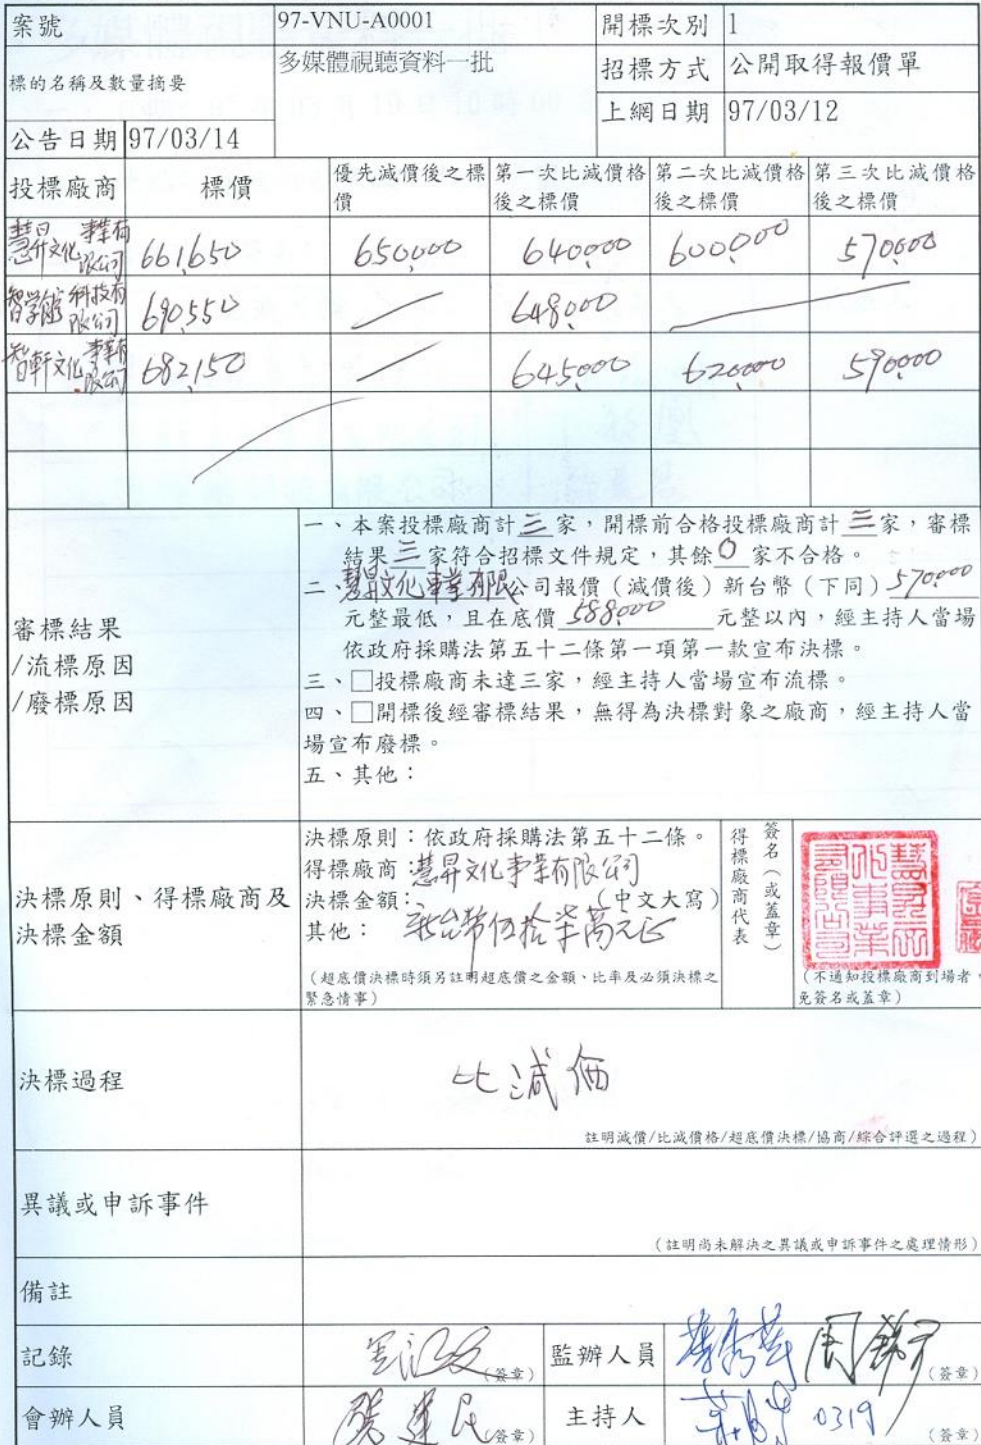 案號 97-VNU-A0001 開標次別 1
標的名稱及數量摘要 多媒體視聽資料一批 招標方式 公開取得報價單
上網日期 97/03/12
公告日期 97/03/14
投標廠商 標價 優先減價後之標價 第一次比減價格後之標價 第二次比減價格後之標價 第三次比減價格後之標價
慧昇文化事業有限公司 661,650 650,000 640,000 600,000 570,000
智學館科技有限公司 690,550 648,000
智軒文化事業有限公司 682,150 645,000 620,000 590,000
審標結果
/流標原因
/廢標原因
一、本案投標廠商計三家,開標前合格投標廠商計三家,審標
結果三家符合招標文件規定,其餘0家不合格。
二、慧昇文化事業有限公司報價(減價後)新台幣(下同)570,000
元整最低,且在底價588,000元整以內,經主持人當場
依政府採購法第五十二條第一項第一款宣布決標。
三、□投標廠商未達三家,經主持人當場宣布流標。
四、□開標後經審標結果,無得為決標對象之廠商,經主持人當
場宣布廢標。
五、其他:
決標原則、得標廠商及
決標金額
決標原則:依政府採購法第五十二條。
得標廠商:慧昇文化事業有限公司
決標金額: (中文大寫)
其他: 新台幣伍拾柒萬元正
(超底價決標時須另註明超底價之金額、比率及必須決標之
緊急情事)
得標廠商代表
簽名(或蓋章)
慧昇文化事業有限公司
(不通知投標廠商到場者,
免簽名或蓋章)
決標過程
比減価
註明減價/比減價格/超底價決標/協商/綜合評選之過程)
異議或申訴事件
(註明尚未解決之異議或申訴事件之處理情形)
備註
記錄 (簽章) 監辦人員 (簽章)
會辦人員 (簽章) 主持人 0319 (簽章)